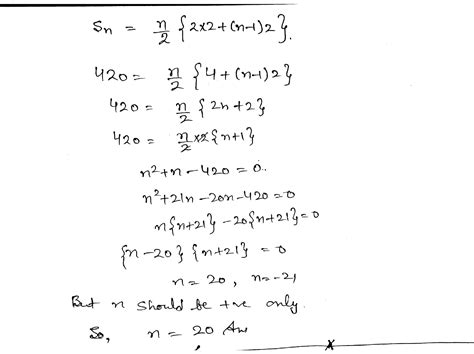 Sn = n/2 {2x2 + (n-1)2}.
420 = n/2 {4 + (n-1)2}
420 = n/2 {2n+2}
420 = n/2 x2{n+1}
n²+n-420 = 0.
n²+21n-20n-420 = 0
n{n+21} - 20{n+21} = 0
{n-20} {n+21} = 0
n = 20, n = -21
But n should be +ve only.
So, n = 20 Ans
x